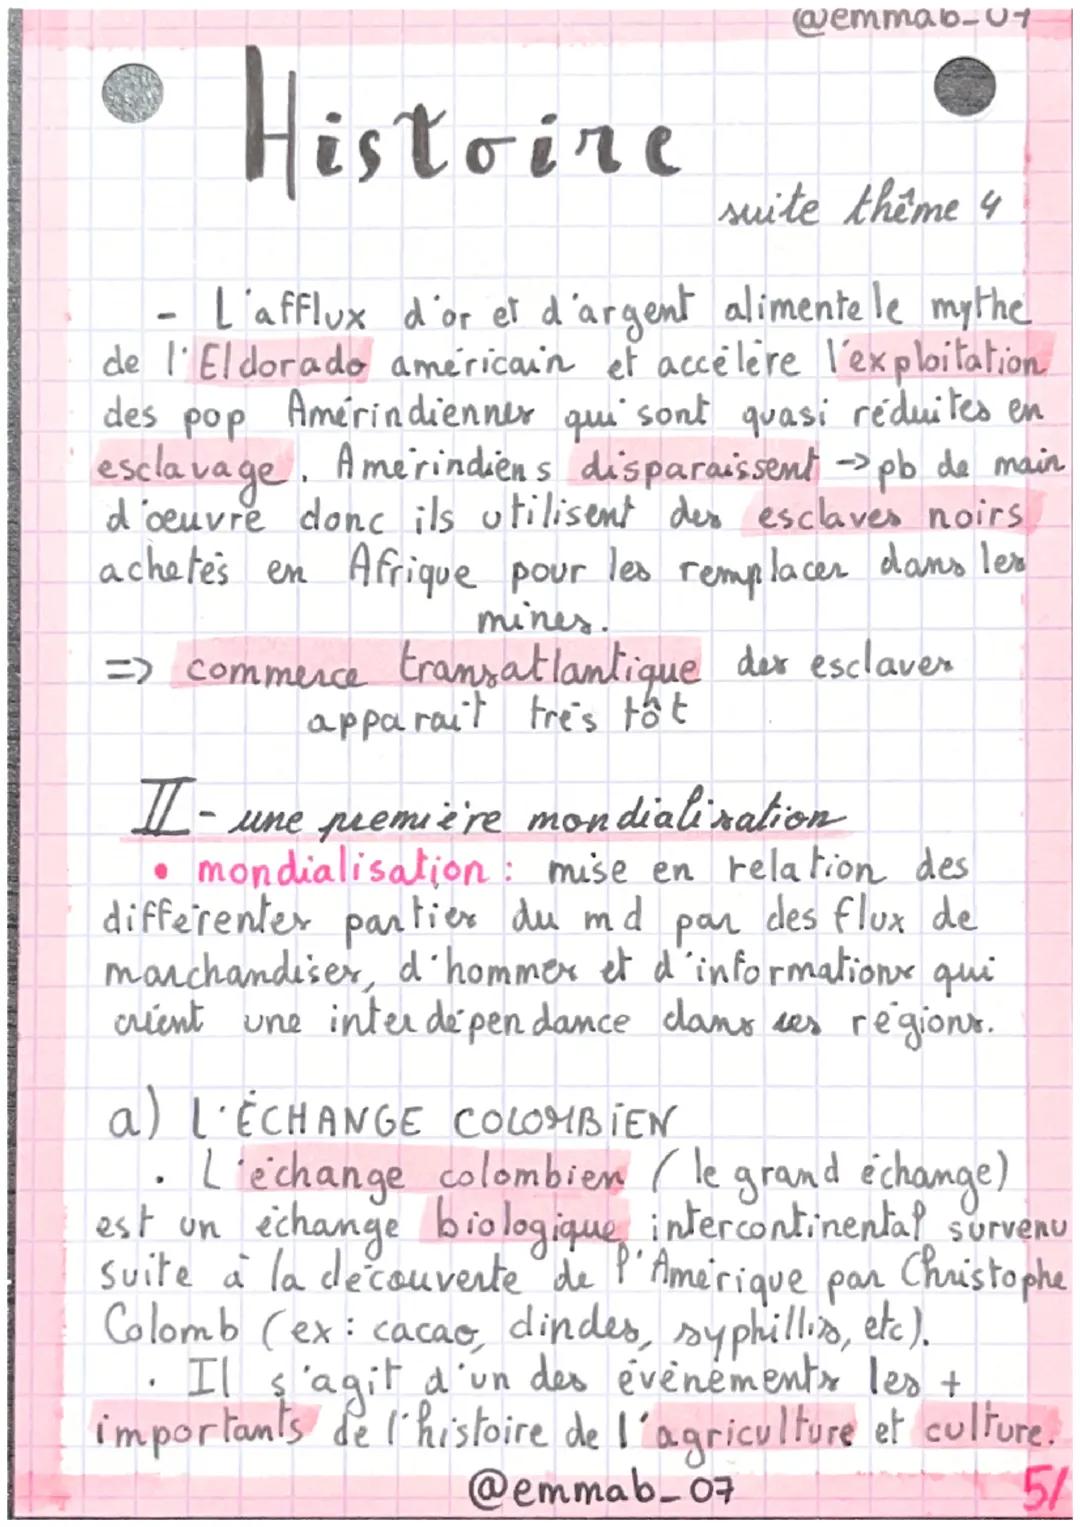 @emmab_07
Histoire
suite thème 4
- L'afflux d'or et d'argent alimente le mythe
de l'Eldorado américain et accélère l'exploitation
des pop Amérindiennes qui sont quasi réduites en
esclavage. Amérindiens disparaissent -> pb de main
d'œuvre donc ils utilisent des esclaves noirs
achetés en Afrique pour les remplacer dans les
mines.
=> commerce transatlantique des esclaves
apparait très tôt
II - une première mondialisation
• mondialisation : mise en relation des
différentes parties du md par des flux de
marchandises, d'hommes et d'informations qui
crient une interdépendance dans ses régions.
a) L'ÉCHANGE COLOMBIEN
. L'échange colombien (le grand échange)
est un échange biologique intercontinental survenu
suite à la découverte de l'Amérique par Christophe
Colomb (ex : cacao, dindes, syphillis, etc).
. Il s'agit d'un des évènements les +
importants de l'histoire de l'agriculture et culture.
@emmab_07
5/